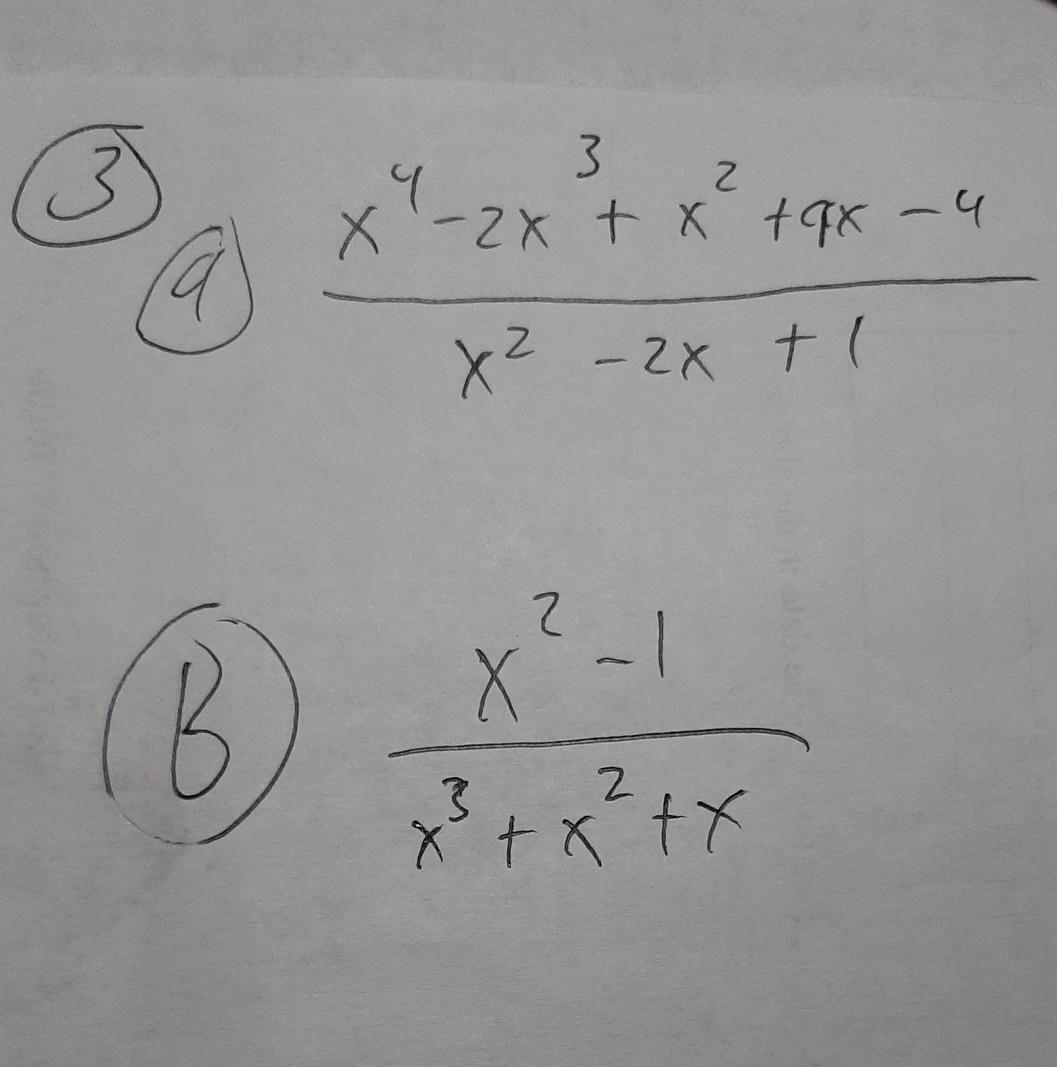 3
a
x⁴ - 2x³ + x² + 9x - 4
x² - 2x + 1
B
x² - 1
x³ + x² + x